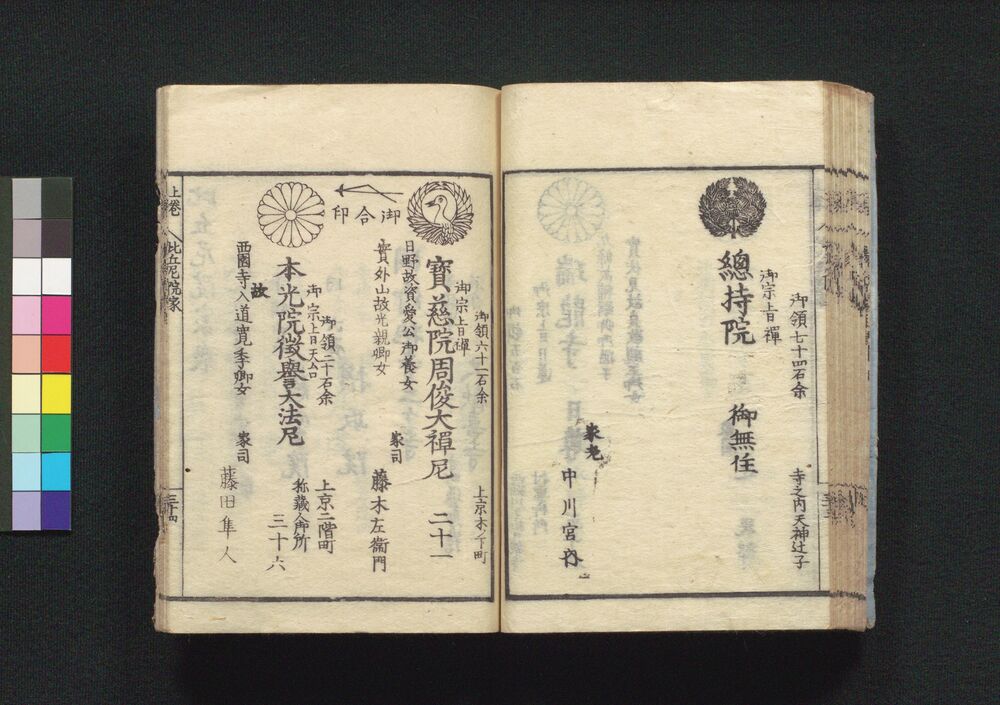 御領七十四石余
寺之内天神辻子
御宗旨禅
總持院
御無住
家老
中川宮内
御領六十二石余
上京木下町
御宗旨禅
寶慈院周俊大禪尼
二十一
日野故資愛公御養女
實外山故光親卿女
家司
藤木左衞門
御合印
御領二十石余
上京二階町
御宗旨天台
称蔵人御所
本光院徴譽大法尼
三十六
故
西園寺入道寛季卿女
家司
藤田隼人
上巻
比丘尼院家
三十四